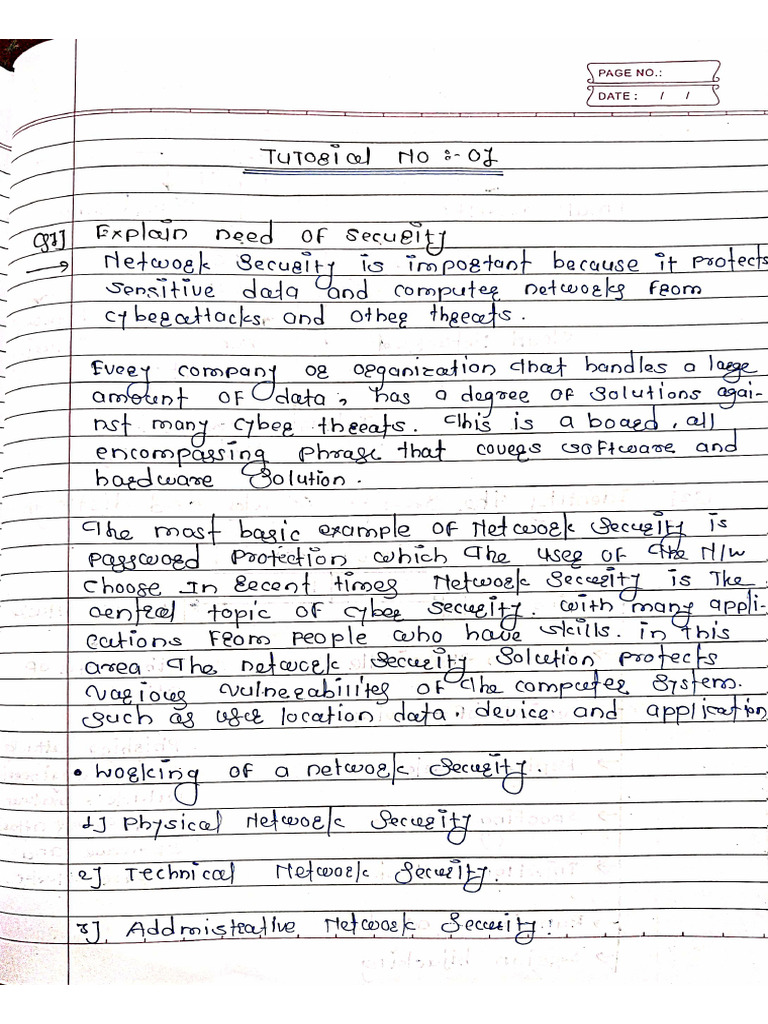 PAGE NO.:
DATE : / /
Tutorial No :- 01
Q1] Explain need of security
→ Network Security is important because it protects
sensitive data and computer networks from
cyberattacks and other threats.
Every company or organization that handles a large
amount of data, has a degree of solutions agai-
nst many cyber threats. This is a board, all
encompassing phrase that covers software and
hardware Solution.
The most basic example of Network Security is
password protection which the user of the N/w
choose In recent times Network Security is The
central topic of cyber security. with many appli-
cations from people who have skills. in this
area the network security Solution protects
various vulnerabilites of the computer System.
such as user location data. device and application
• Working of a network Security.
1] Physical Network Security
2] Technical Network Security.
3] Addmistrative Network Security.